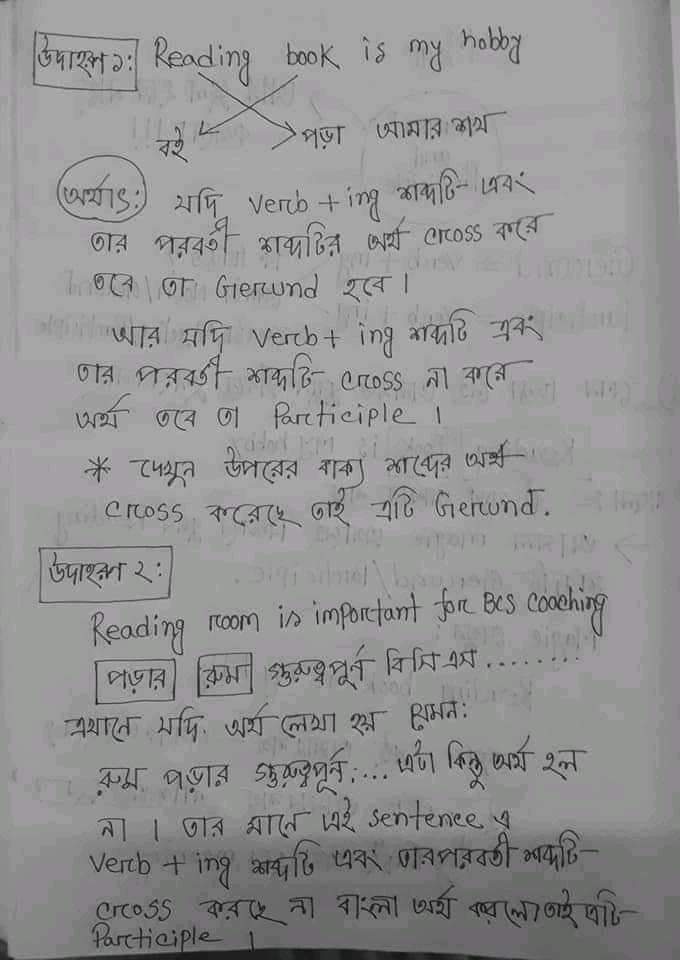 উদাহরণ ১: Reading book is my hobby
বই পড়া আমার শখ
অর্থাৎ: যদি verb + ing শব্দটি এবং
তার পরবর্তী শব্দটির অর্থ cross করে
তবে তা Gerund হবে।
আর যদি verb + ing শব্দটি এবং
তার পরবর্তী শব্দটি cross না করে
অর্থ তবে তা Participle।
* দেখুন উপরের বাক্য শব্দের অর্থ
cross করেছে তাই এটি Gerund.
উদাহরণ ২:
Reading room is important for BCS coaching
পড়ার রুম গুরুত্বপূর্ন বিসিএস........
এখানে যদি অর্থ লেখা হয় যেমন:
রুম পড়ার গুরুত্বপূর্ন;... এটা কিন্তু অর্থ হল
না। তার মানে এই sentence এ
verb + ing শব্দটি এবং তারপরবর্তী শব্দটি
cross করছে না বাংলা অর্থ করলে। তাই এটি
Participle।